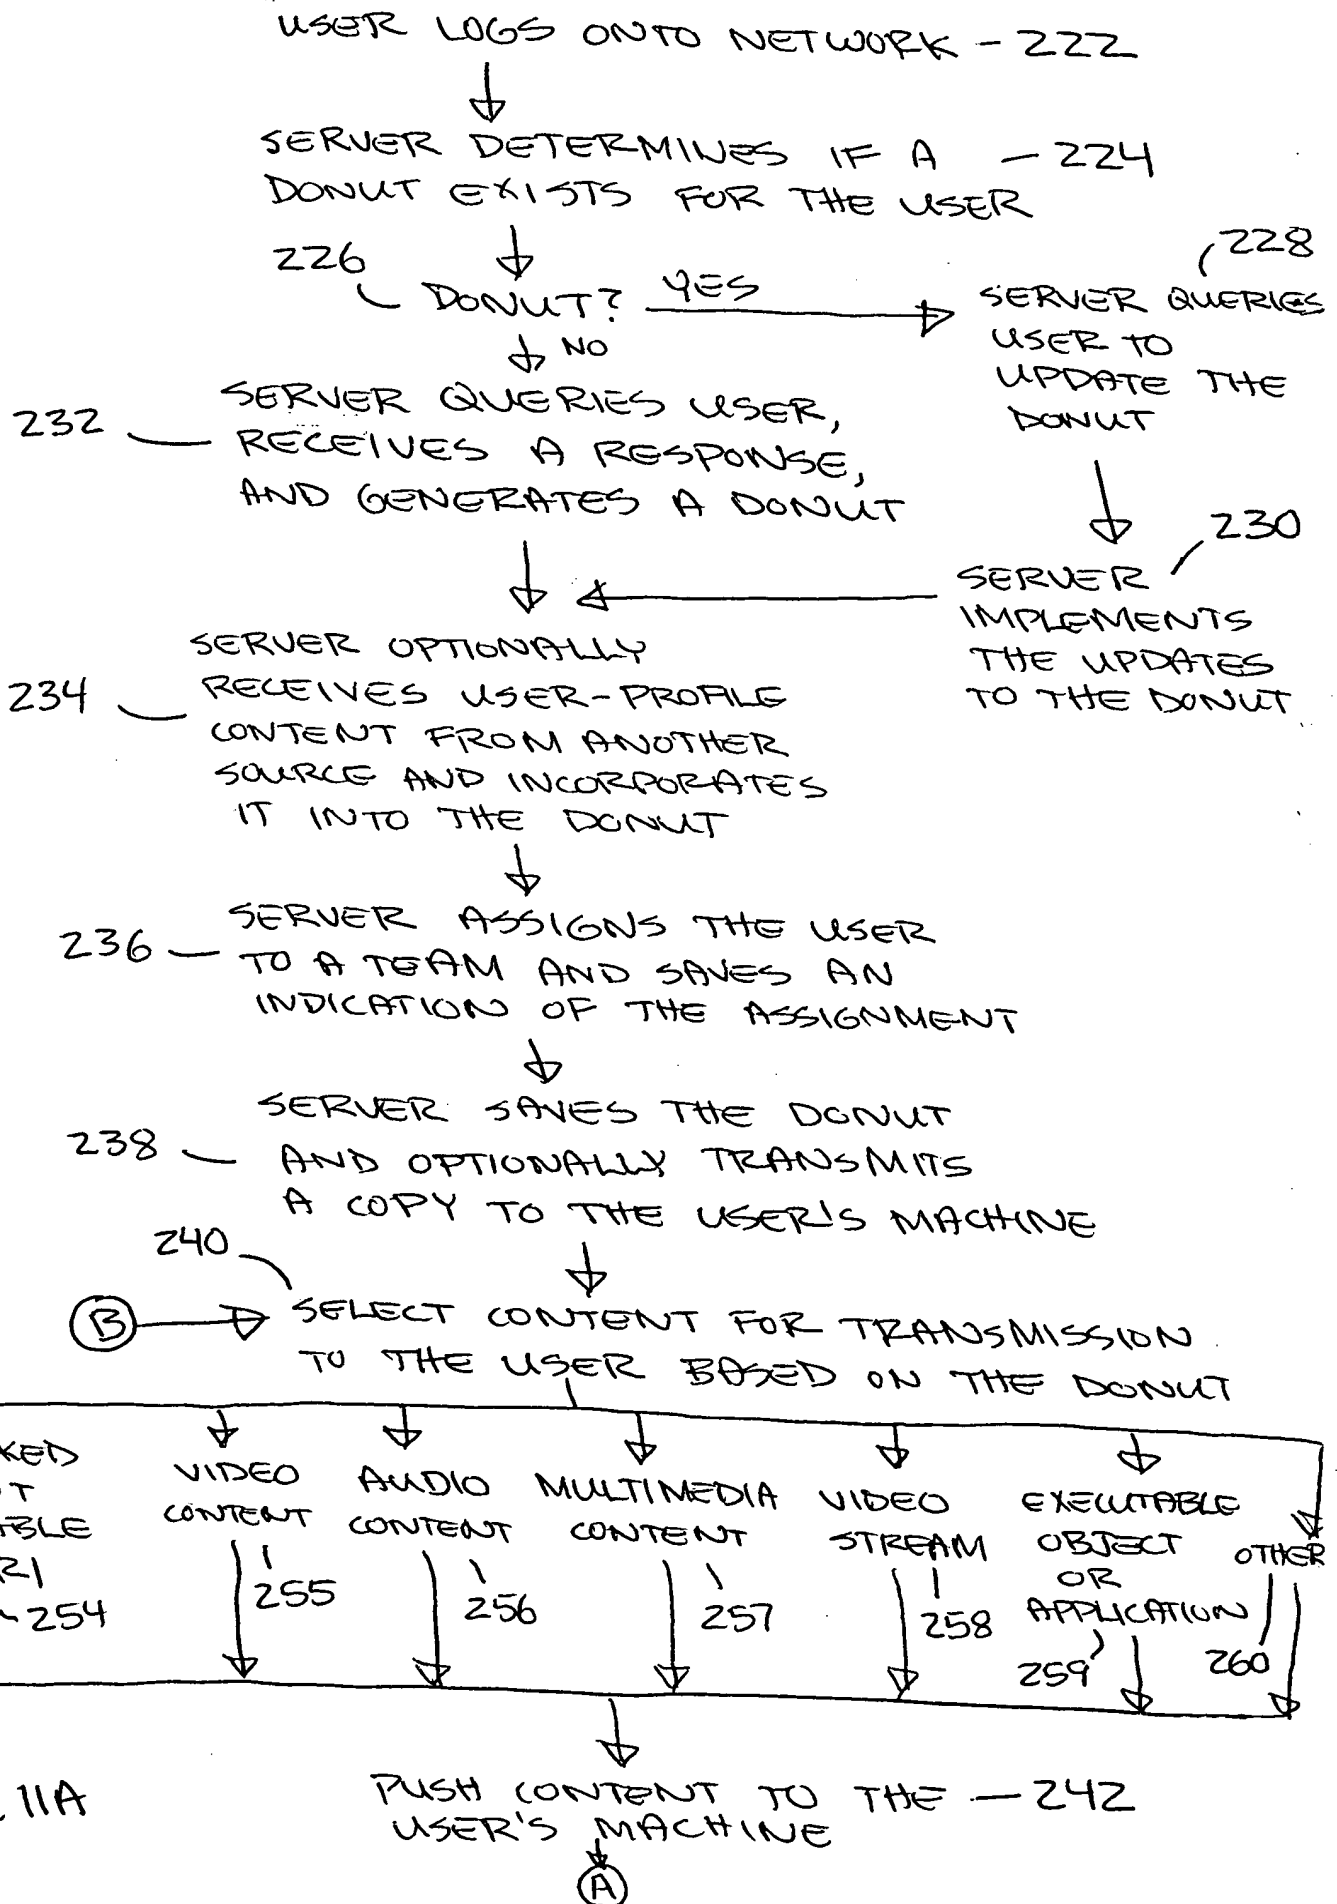 USER LOGS ONTO NETWORK - 222
SERVER DETERMINES IF A - 224
DONUT EXISTS FOR THE USER
226
DONUT?
YES
NO
228
SERVER QUERIES
USER TO
UPDATE THE
DONUT
232
SERVER QUERIES USER,
RECEIVES A RESPONSE,
AND GENERATES A DONUT
230
SERVER
IMPLEMENTS
THE UPDATES
TO THE DONUT
234
SERVER OPTIONALLY
RECEIVES USER-PROFILE
CONTENT FROM ANOTHER
SOURCE AND INCORPORATES
IT INTO THE DONUT
236
SERVER ASSIGNS THE USER
TO A TEAM AND SAVES AN
INDICATION OF THE ASSIGNMENT
238
SERVER SAVES THE DONUT
AND OPTIONALLY TRANSMITS
A COPY TO THE USER'S MACHINE
240
B
SELECT CONTENT FOR TRANSMISSION
TO THE USER BASED ON THE DONUT
KED
T
ABLE
254
VIDEO
CONTENT
255
AUDIO
CONTENT
256
MULTIMEDIA
CONTENT
257
VIDEO
STREAM
258
EXECUTABLE
OBJECT
OR
APPLICATION
259
OTHER
260
11A
PUSH CONTENT TO THE - 242
USER'S MACHINE
A